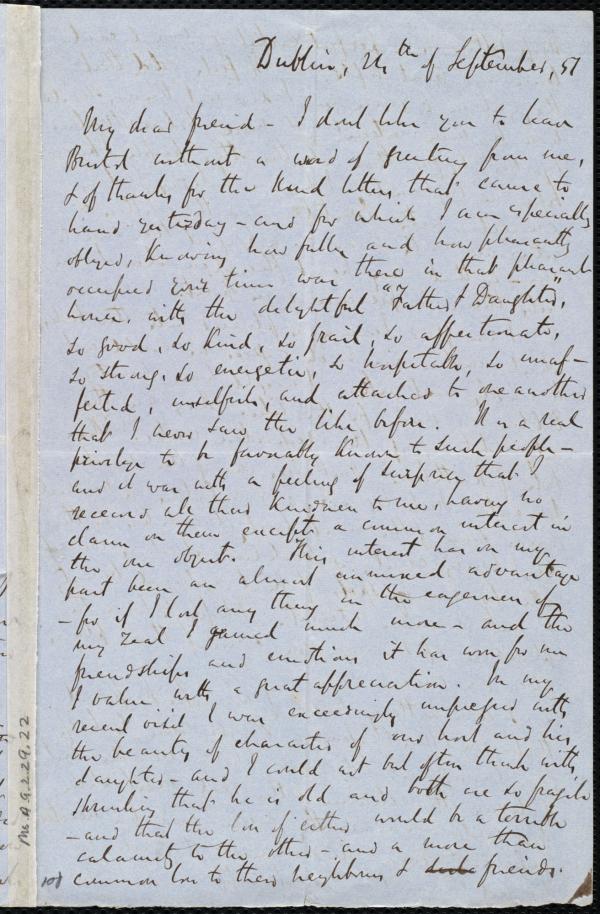 Dublin, 24th of September, 51
My dear friend - I dont like you to leave
Bristol without a word of greeting from me,
& of thanks for the kind letters that came to
hand yesterday - and for which I am especially
obliged, knowing how fully and how pleasantly
occupied your time was there in that pleasant
house, with the delightful "Father & Daughter",
so good, so kind, so frail, so affectionate,
so strong, so energetic, so hospitable, so unaf-
fected, unselfish, and attached to one another
that I never saw the like before. It is a real
privilege to be favorably known to such people -
and it was with a feeling of surprise that I
received all their kindness to me, having no
claim on them except a common interest in
the one object. This interest has on my
part been an almost unmixed advantage
- for if I lost any thing in the eagerness of
my zeal I gained much more - and the
friendships and emotions it has won for me
I value with a great appreciation. In my
recent visit I was exceedingly impressed with
the beauty of character of our host and his
daughter - and I could not but often think with
shrinking that he is old and both are so fragile
- and that the loss of either would be a terrible
calamity to the other - and a more than
common loss to their neighbours & friends.
Ms.A.9.2.29.22
108